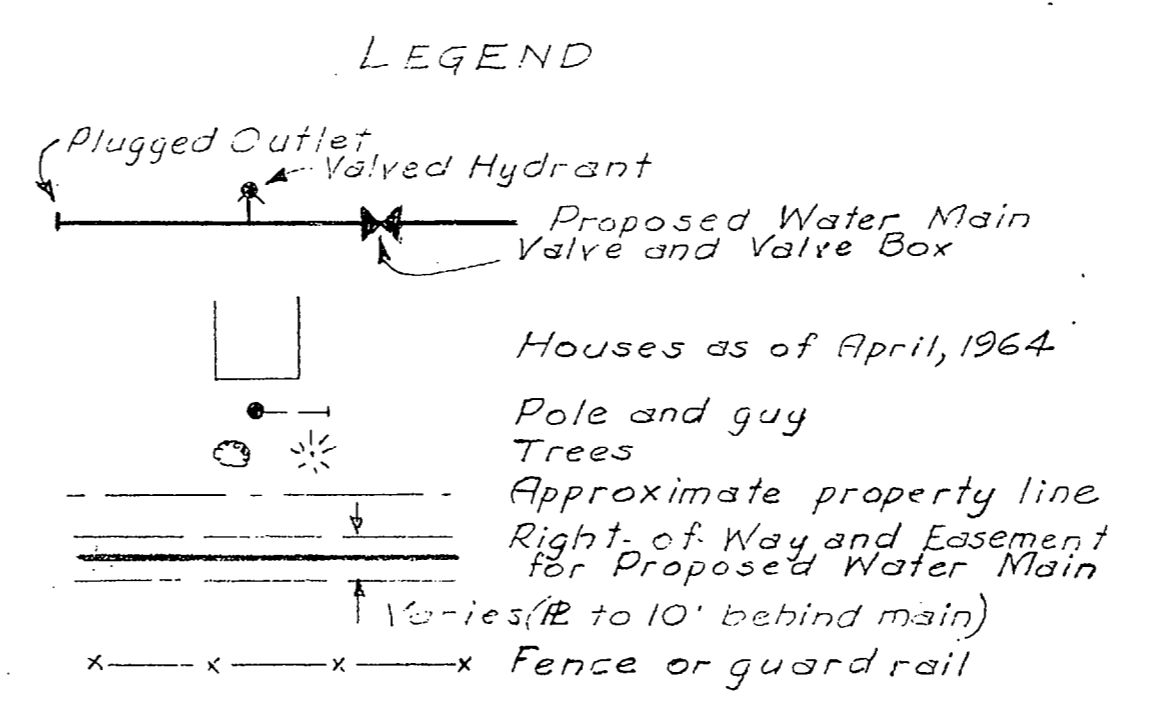 LEGEND
Plugged Outlet
Valved Hydrant
Proposed Water Main
Valve and Valve Box
Houses as of April, 1964
Pole and guy
Trees
Approximate property line
Right-of-Way and Easement
for Proposed Water Main
Varies (PL to 10' behind main)
Fence or guard rail